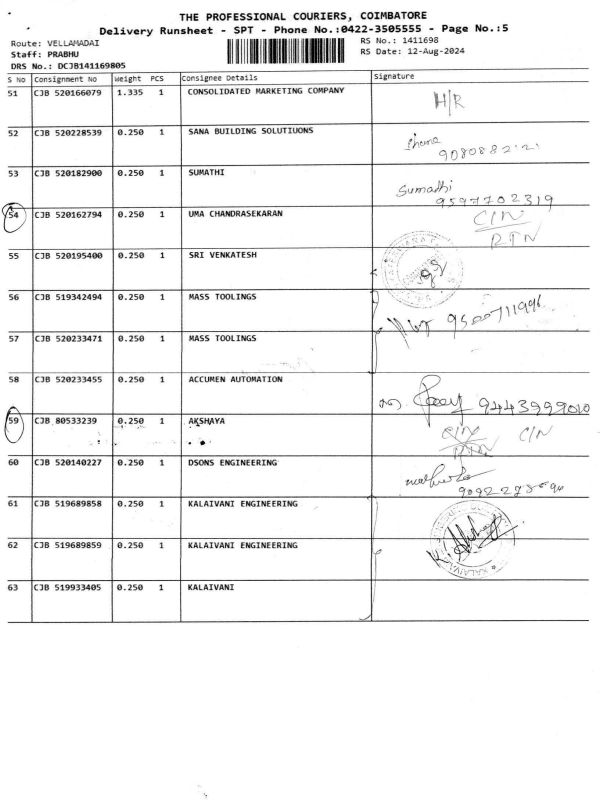 THE PROFESSIONAL COURIERS, COIMBATORE
Delivery Runsheet - SPT - Phone No.:0422-3505555 - Page No.:5
Route: VELLAMADAI
Staff: PRABHU
DRS No.: DCJB141169805
RS No.: 1411698
RS Date: 12-Aug-2024
S No Consignment No Weight PCS Consignee Details Signature
51 CJB 520166079 1.335 1 CONSOLIDATED MARKETING COMPANY H/R
52 CJB 520228539 0.250 1 SANA BUILDING SOLUTIUONS
53 CJB 520182900 0.250 1 SUMATHI Sumathi
9597702319
54 CJB 520162794 0.250 1 UMA CHANDRASEKARAN C/N
RTN
55 CJB 520195400 0.250 1 SRI VENKATESH
56 CJB 519342494 0.250 1 MASS TOOLINGS 9500711996
57 CJB 520233471 0.250 1 MASS TOOLINGS
58 CJB 520233455 0.250 1 ACCUMEN AUTOMATION 9443999010
59 CJB 80533239 0.250 1 AKSHAYA C/N RTN C/N
60 CJB 520140227 0.250 1 DSONS ENGINEERING
61 CJB 519689858 0.250 1 KALAIVANI ENGINEERING
62 CJB 519689859 0.250 1 KALAIVANI ENGINEERING
63 CJB 519933405 0.250 1 KALAIVANI